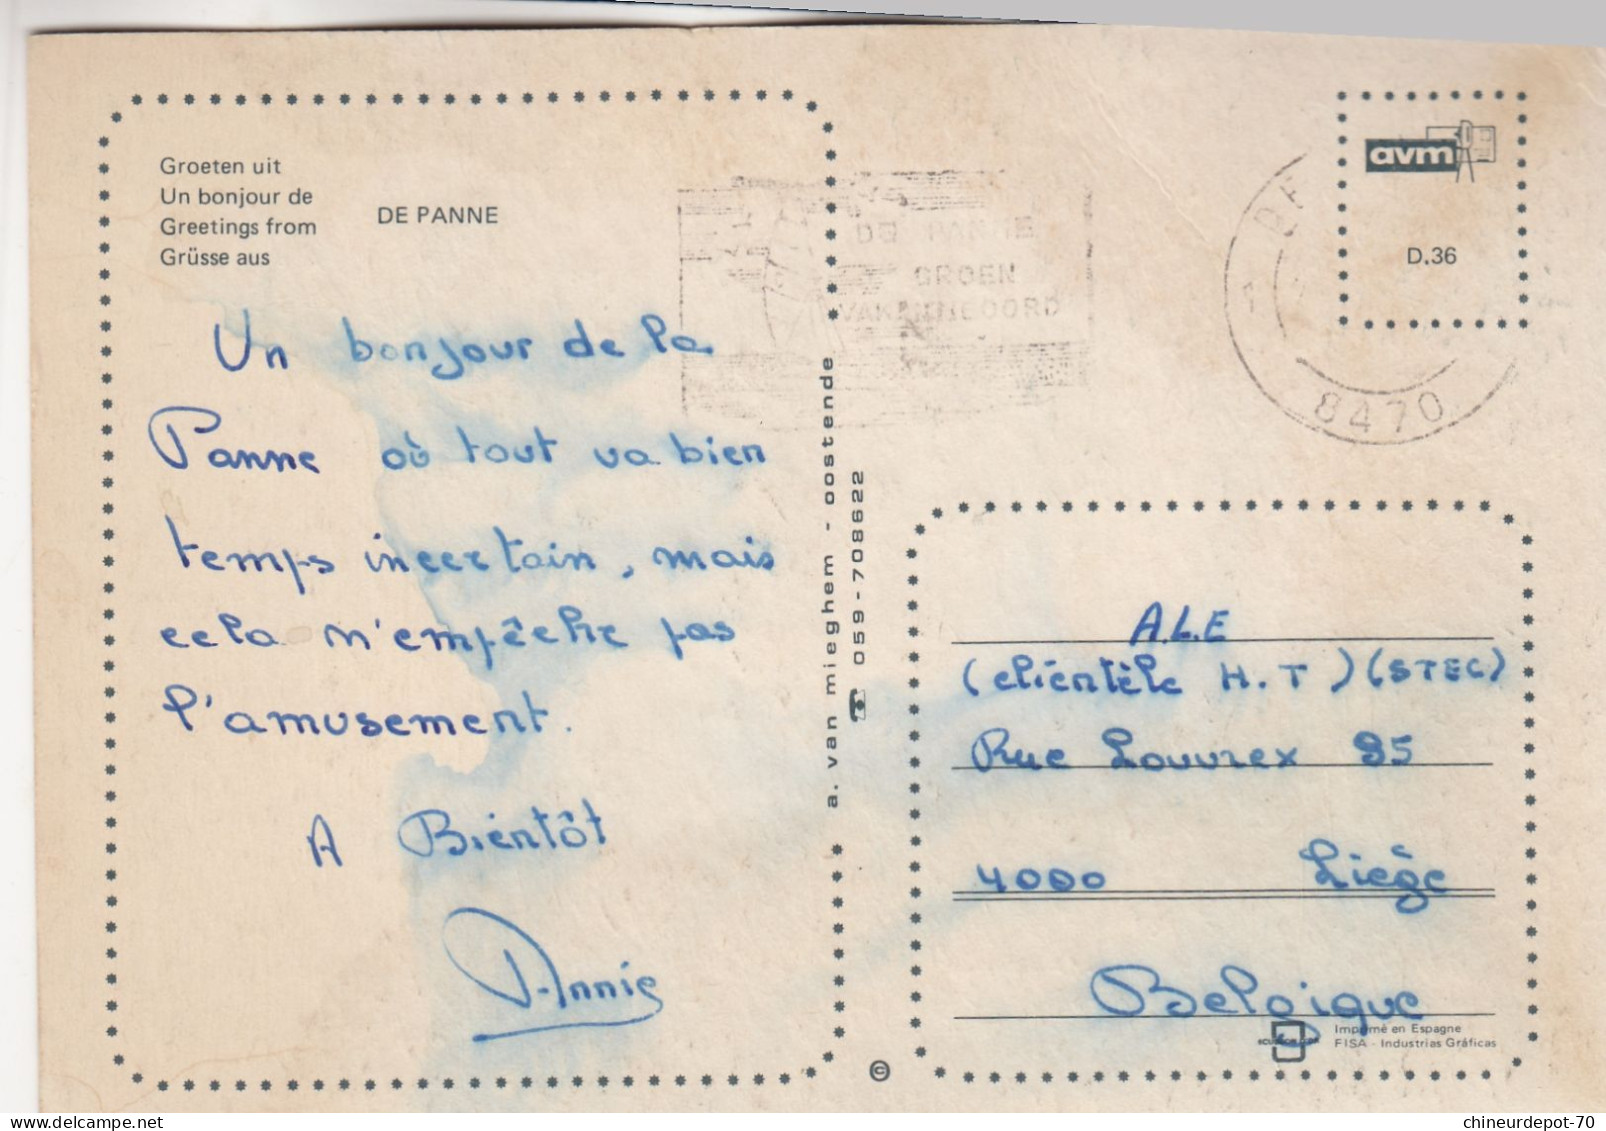 Groeten uit
Un bonjour de
Greetings from
Grüsse aus
DE PANNE
Un bonjour de la
Panne où tout va bien
temps incertain, mais
cela n'empêche pas
l'amusement.
A Bientôt
Annie
DE PANNE
GROEN
VAKANTIEOORD
8470
avm
D.36
a. van mieghem - oostende
059-708622
A.L.E
(clientèle H.T) (STEC)
Rue Louvrex 95
4000 Liège
Belgique
Imprimé en Espagne
FISA - Industrias Gráficas
©
chineurdepot-70